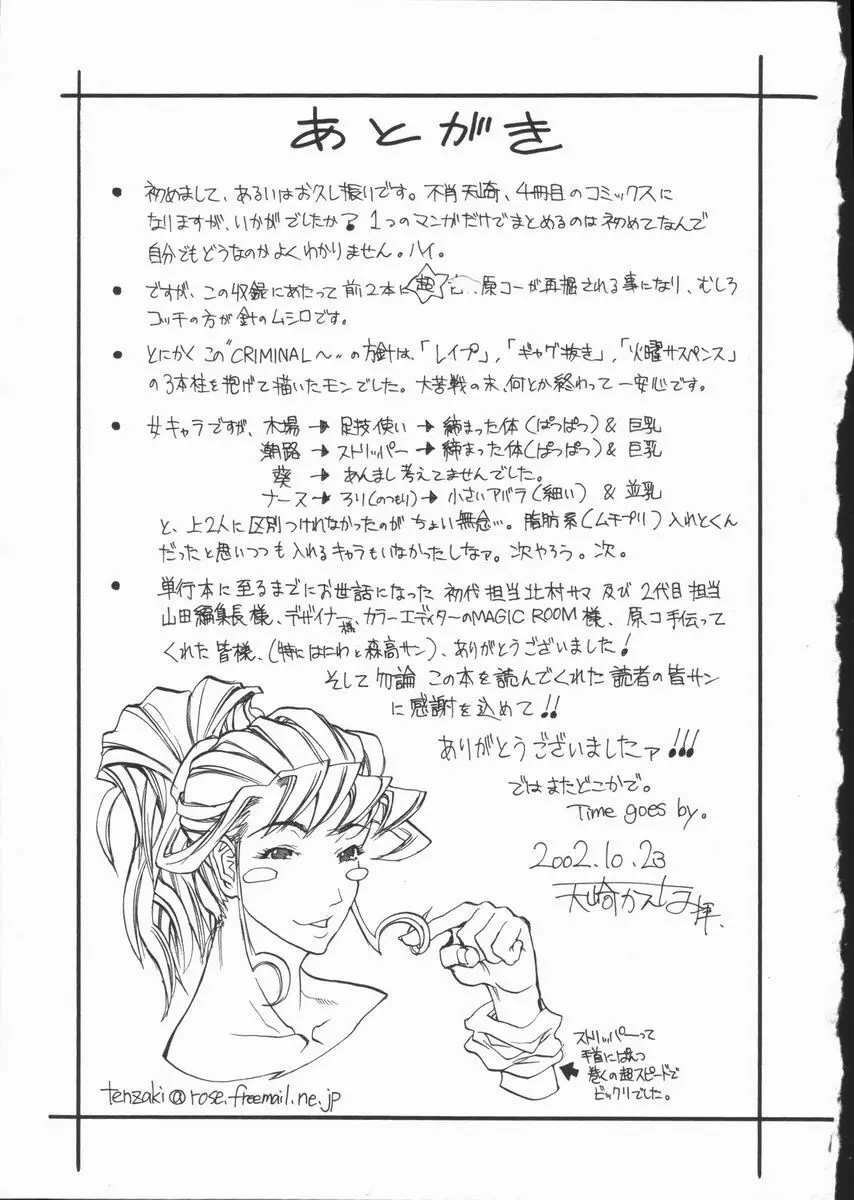 あとがき
• 初めまして、あるいはお久し振りです。不肖天崎、4冊目のコミックスに
なりますが、いかがでしたか？1つのマンガだけでまとめるのは初めてなんで
自分でもどうなのかよくわかりません。ハイ。
• ですが、この収録にあたって前2本に超 原コーが再掘される事になり、むしろ
コッチの方が針のムシロです。
• とにかくこの“CRIMINAL〜”の方針は、「レイプ」,「ギャグ抜き」,「火曜サスペンス」
の3本柱を掲げて描いたモンでした。大苦戦の末、何とか終わって一安心です。
• 女キャラですが、木場→足技使い→締まった体(ぱっぱつ)&巨乳
潮路→ストリッパー→締まった体(ぱっぱつ)&巨乳
葵→あんまし考えてませんでした。
ナース→ろり(のつもり)→小さいアバラ(細い)&並乳
と、上2人に区別つけれなかったのがちょい無念…。脂肪系(ムチプリ)入れとくん
だったと思いつつも入れるキャラもいなかったしなァ。次やろう。次。
• 単行本に至るまでにお世話になった初代担当北村サマ及び2代目担当
山田編集長様、デザイナー様、カラーエディターのMAGIC ROOM様、原コ手伝って
くれた皆様、(特にはにわと森高サン)、ありがとうございました!
そして勿論この本を読んでくれた読者の皆サン
に感謝を込めて!!
ありがとうございましたァ!!!
ではまたどこかで。
Time goes by.
2002.10.23
天崎かんな拝.
ストリッパーって
手首にぱんつ
巻くの超スピードで
ビックリでした。
tenzaki@rose.freemail.ne.jp